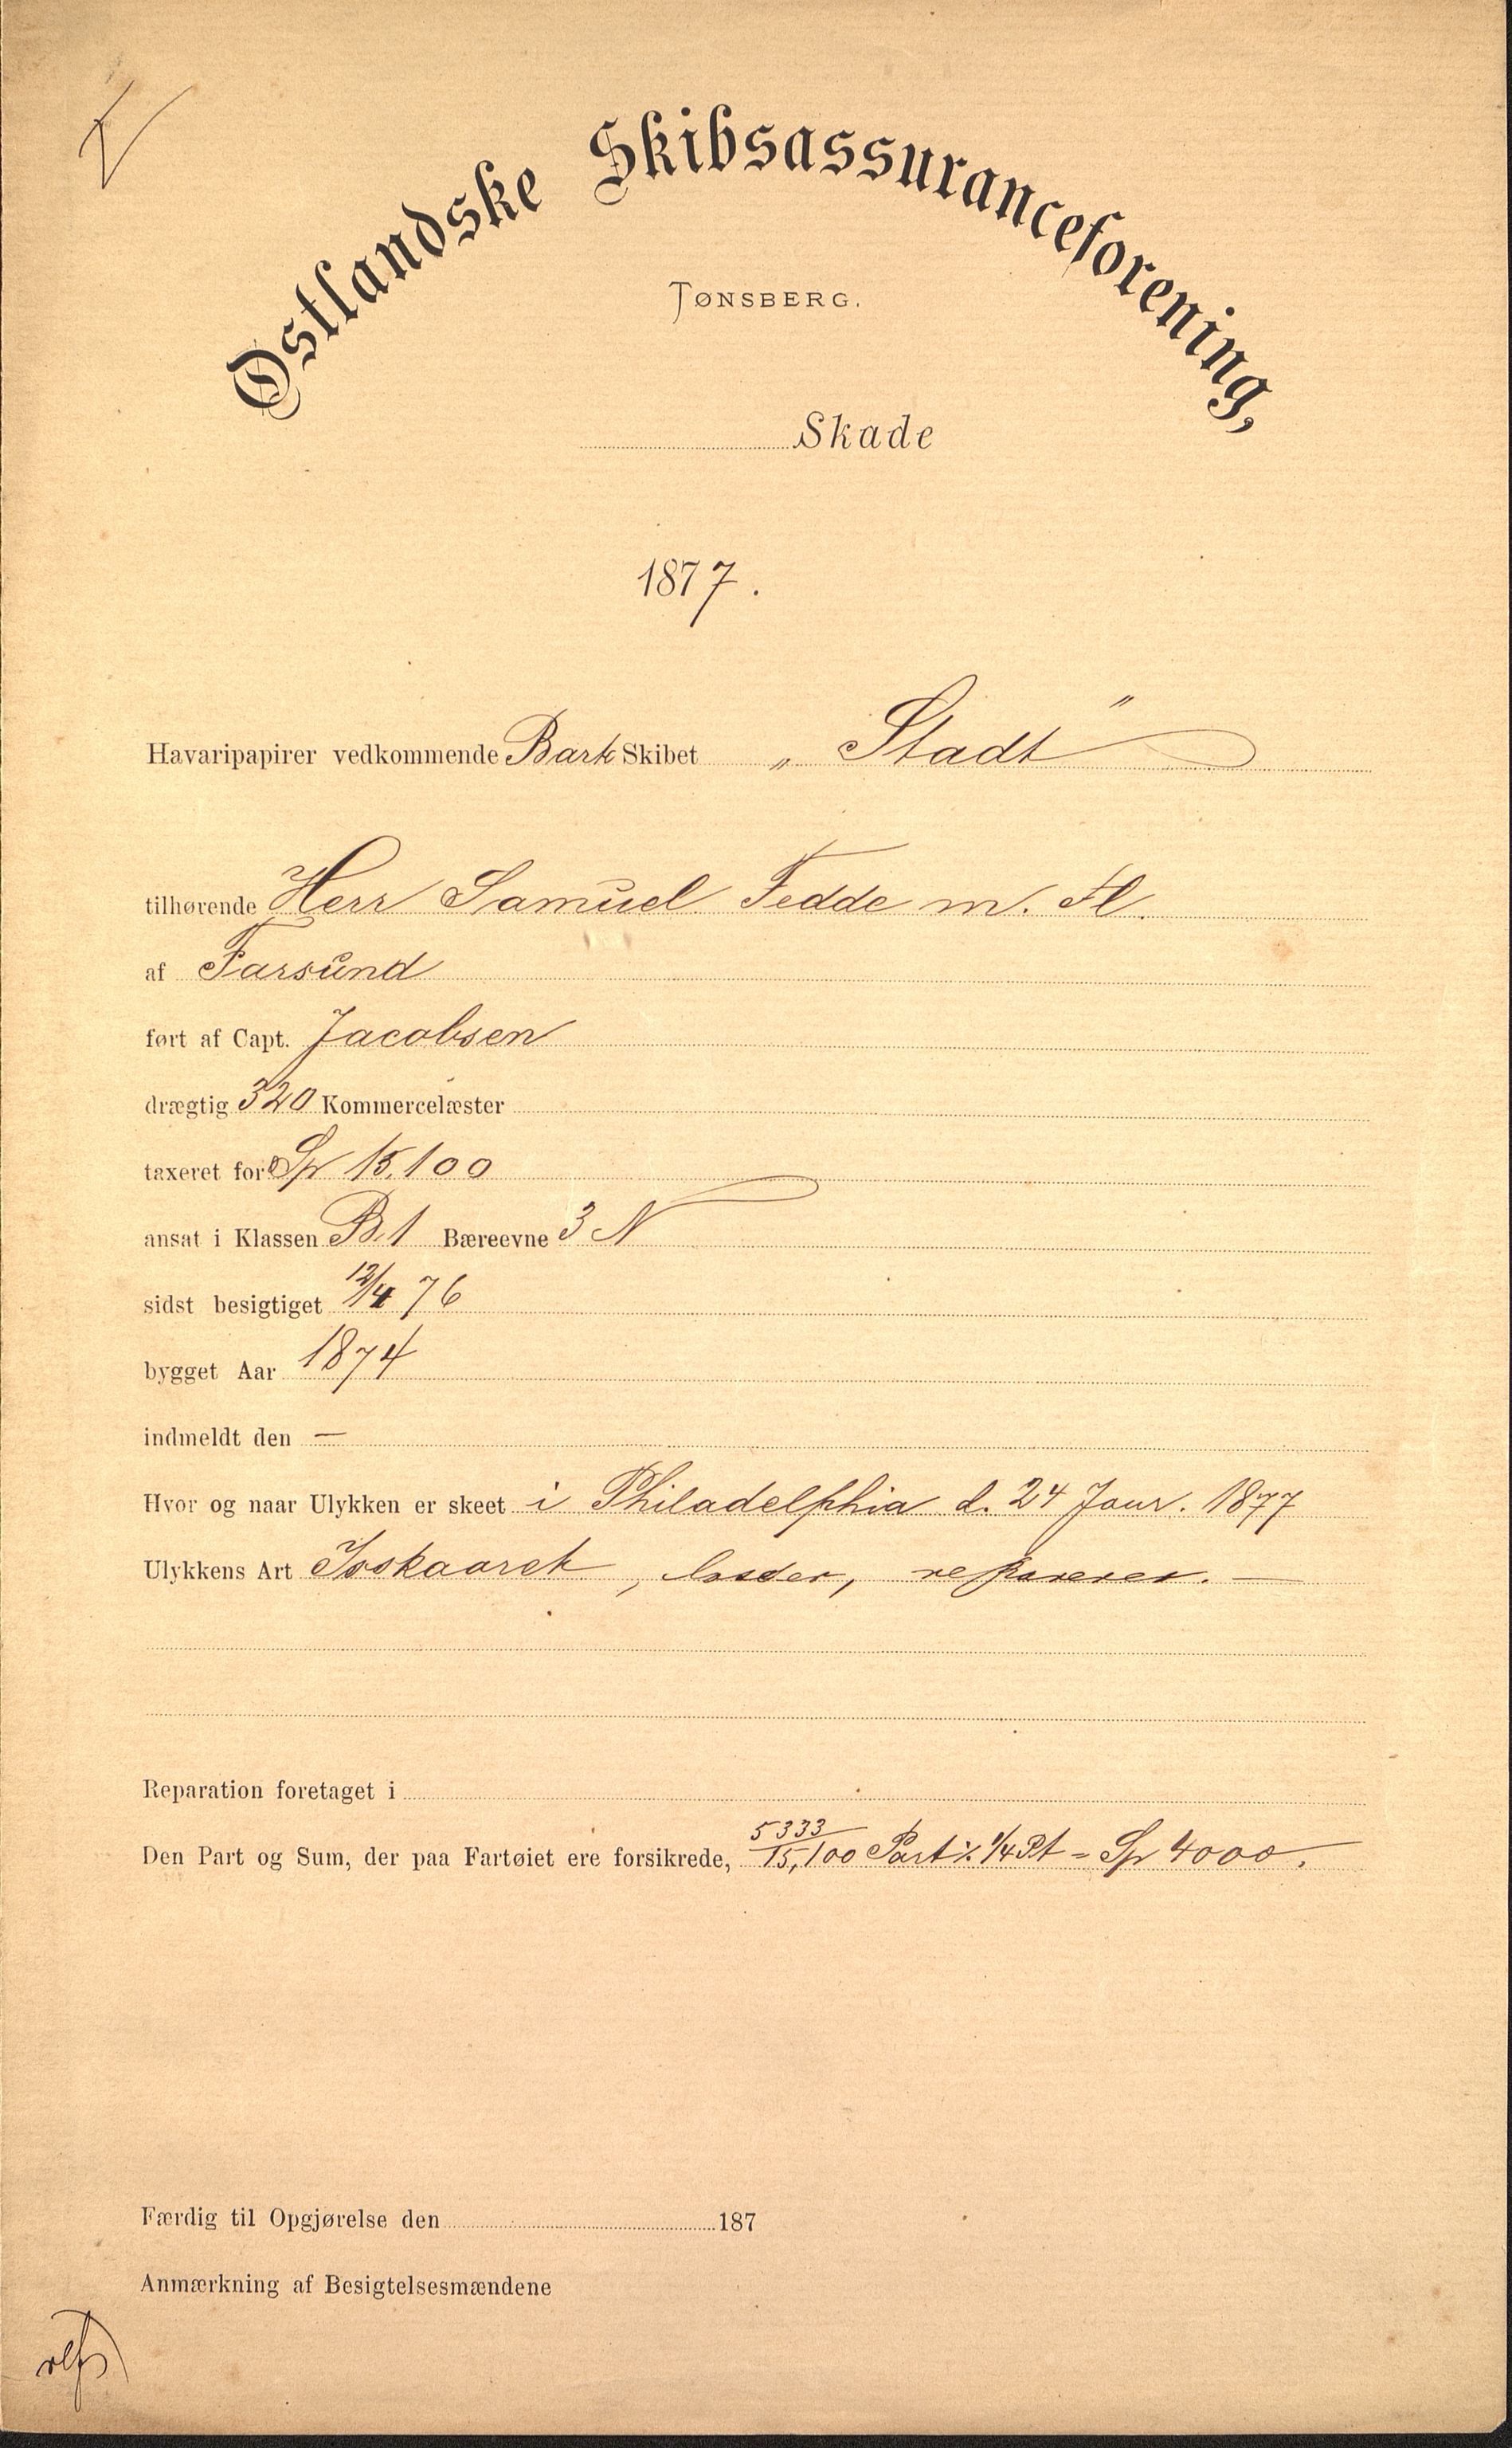 Østlandske Skibsassuranceforening,
TØNSBERG.
Skade
1877.
Havaripapirer vedkommende Bark Skibet „Stadt"
tilhørende Herr Samuel Fedde m. Fl.
af Farsund
ført af Capt. Jacobsen
drægtig 320 Kommercelæster
taxeret for Sp 15,100
ansat i Klassen B.1 Bæreevne 3 N
sidst besigtiget 12/4 76
bygget Aar 1874
indmeldt den —
Hvor og naar Ulykken er skeet i Philadelphia d. 24 Janr. 1877
Ulykkens Art Isskaaret, losser, reparerer. —
Reparation foretaget i
Den Part og Sum, der paa Fartøiet ere forsikrede, 5333/15,100 Part ÷ 1/4 Pt = Sp 4000.
Færdig til Opgjørelse den 187
Anmærkning af Besigtelsesmændene